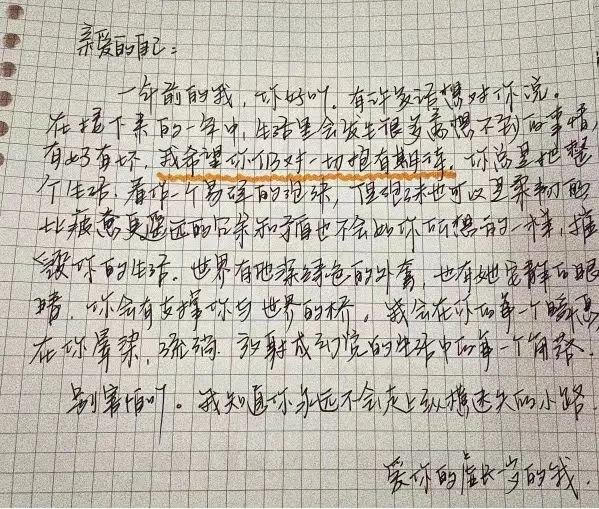 亲爱的自己：
一年前的我，你好吖。有许多话想对你说。
在接下来的一年中，生活里会发生很多意想不到的事情，
有好有坏，我希望你仍对一切抱有期待。你总是把整
个生活，看作一个易碎的泡沫，但泡沫也可以是柔韧的
比疲惫更遥远的只是矛盾也不会如你所想的一样，摧
毁你的生活。世界有她深绿色的外套，也有她安静的眼
睛，你会有支撑你与世界的桥。我会在你的每一个瞬息
在你晕染，流淌，放射成幻觉的生活中的每一个角落。
别害怕吖。我知道你永远不会走上纵横迷失的小路。
爱你的虚长一岁的我.